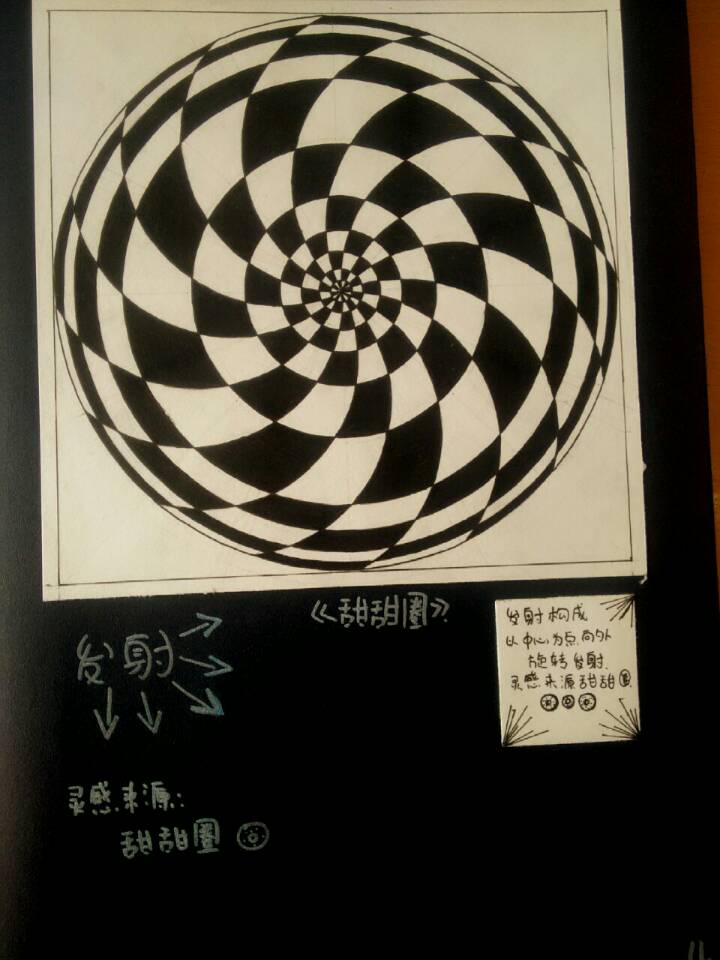 《甜甜圈》
发射
灵感来源:
甜甜圈
发射构成
以中心为点向外
旋转发射.
灵感来源甜甜圈